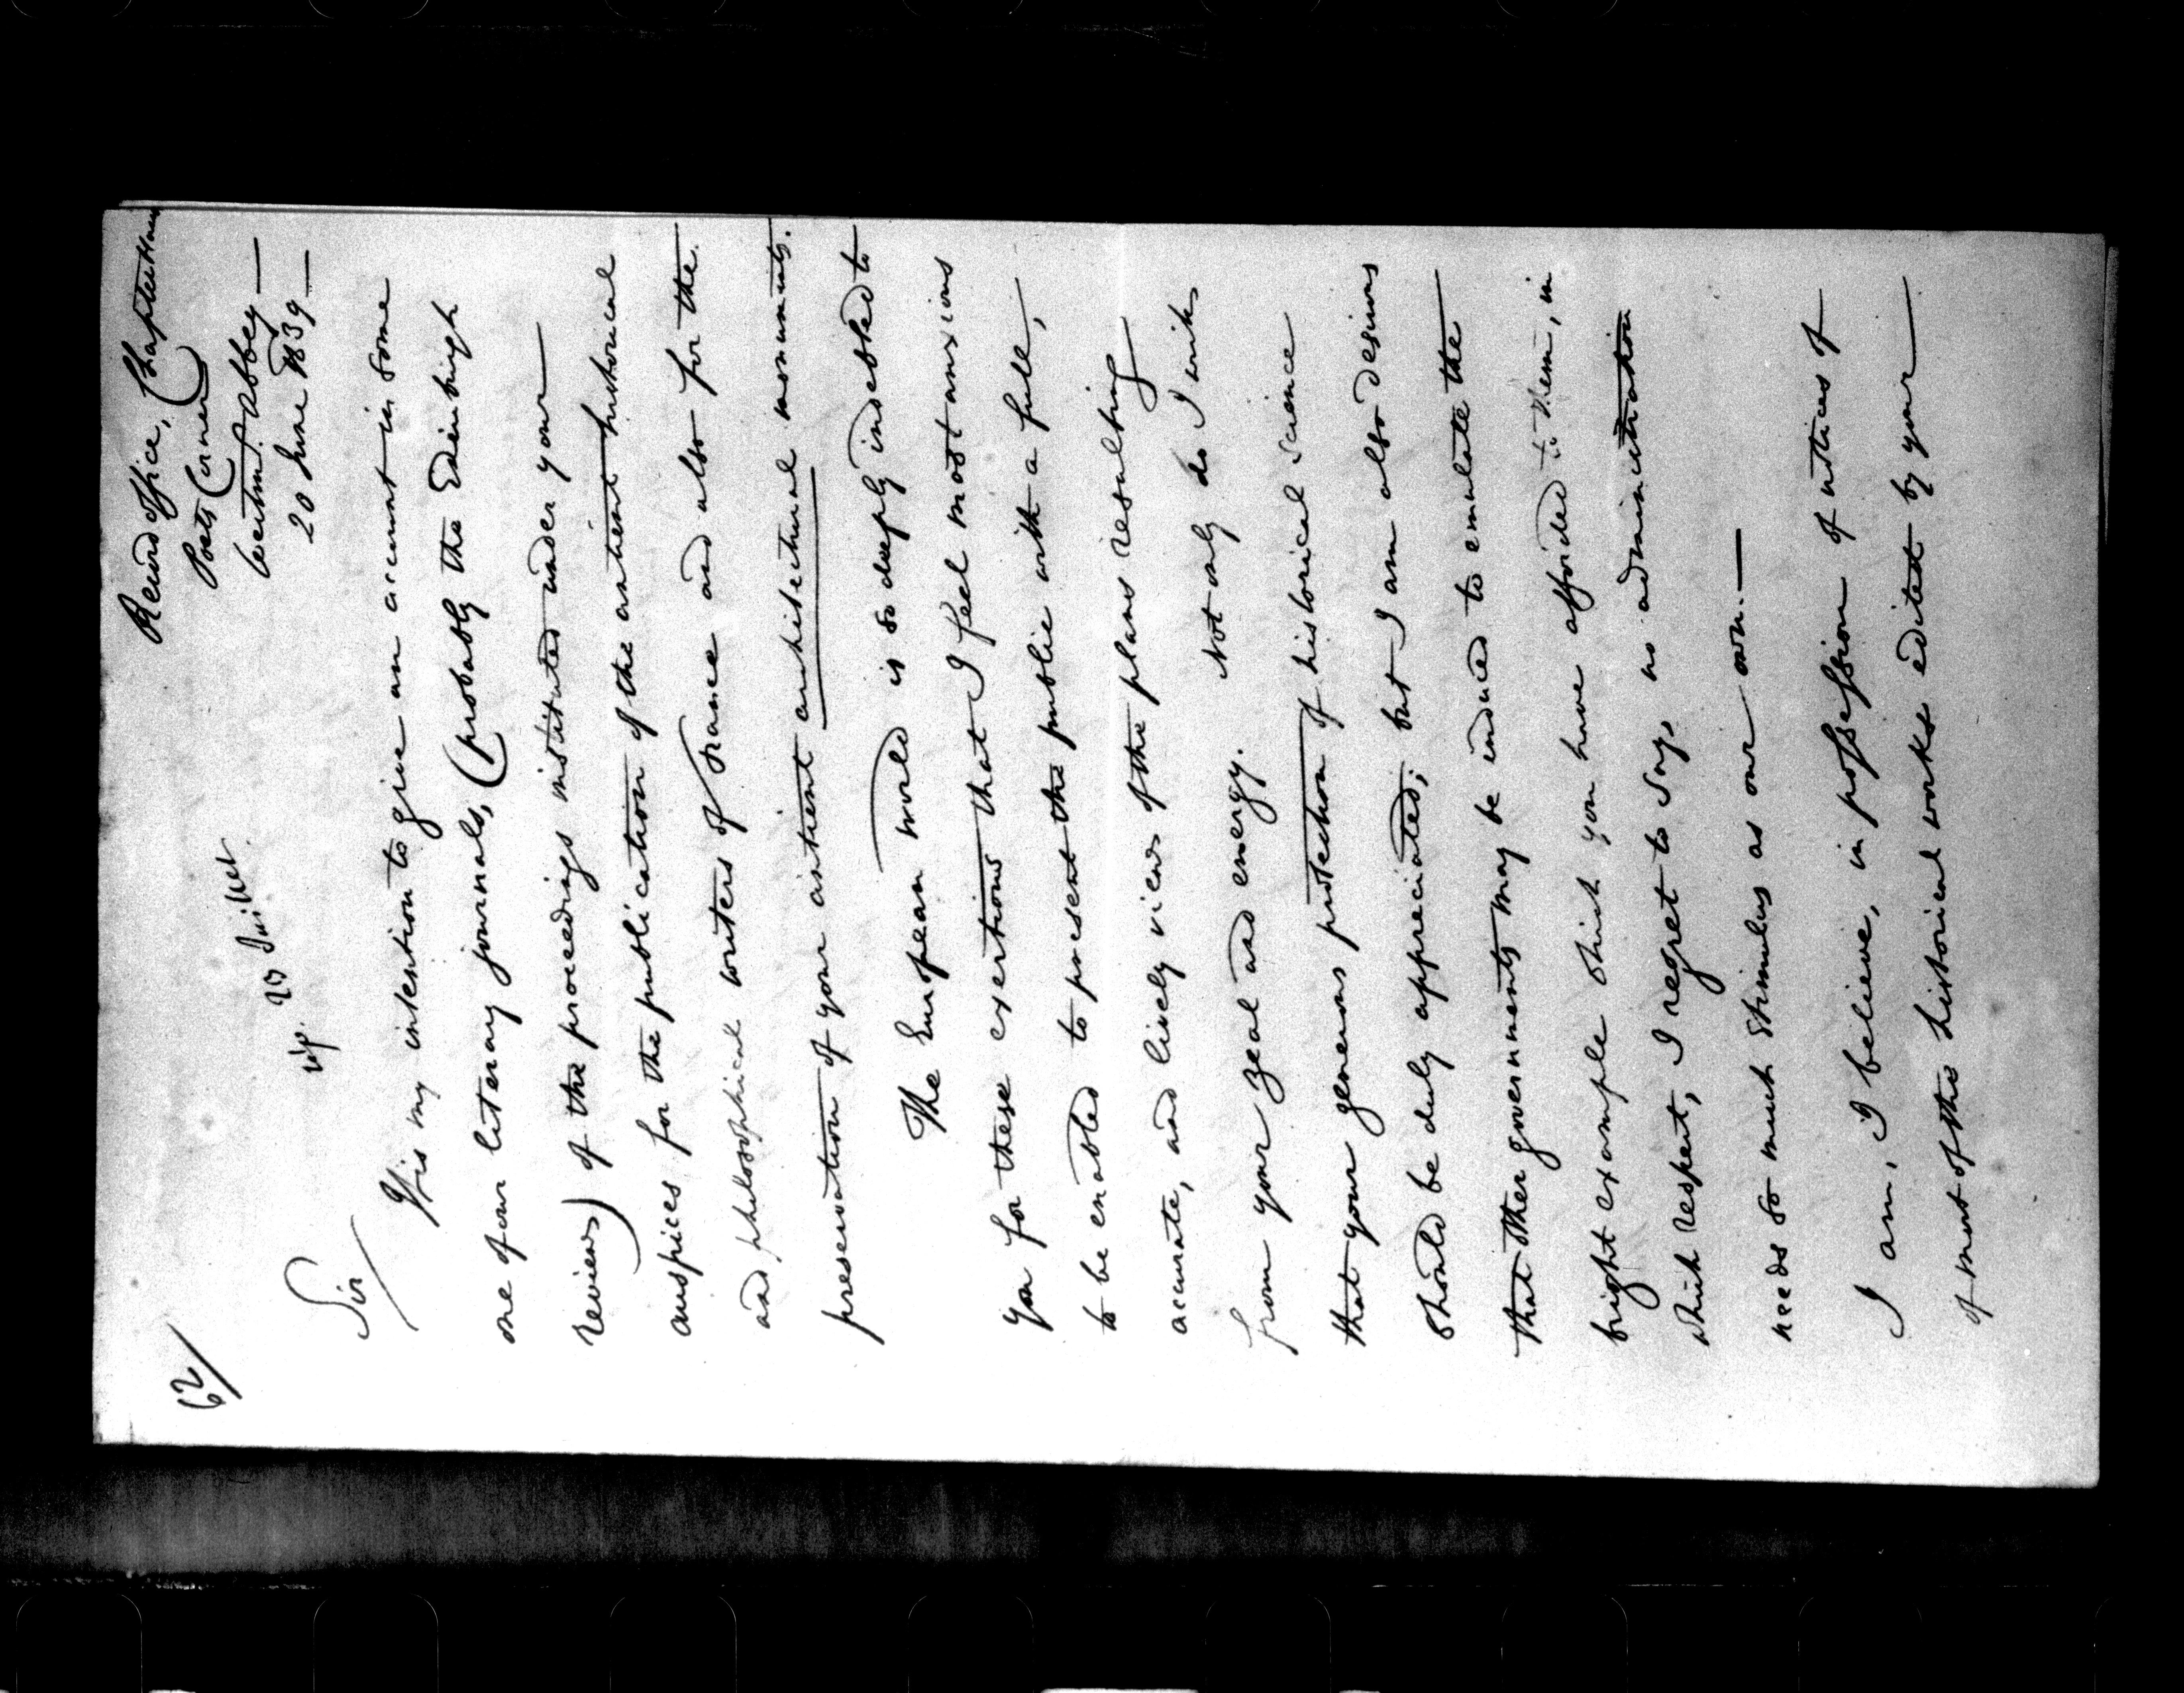 62/
Record Office, Chapter House
Poets Corner
Westmr. Abbey —
20 June 1839 —
rép. 23 Juillet
Sir/
It is my intention to give an account in some
one of our literary journals, (probably the Edinburgh
review) of the proceedings instituted under your
auspices for the publication of the antient historical
and philosophical writers of France and also for the
preservation of your antient architectural monuments.
The European world is so deeply indebted to
you for these exertions that I feel most anxious
to be enabled to present the public with a full,
accurate, and lively view of the plans resulting
from your zeal and energy. Not only do I wish
that your generous protection of historical science
should be duly appreciated; but I am also desirous
that other governments may be induced to emulate the
bright example which you have afforded to them, in
which respect, I regret to say, no administration
needs so much stimulus as our own. —
I am, I believe, in possession of notices of
of most of the historical works edited by your